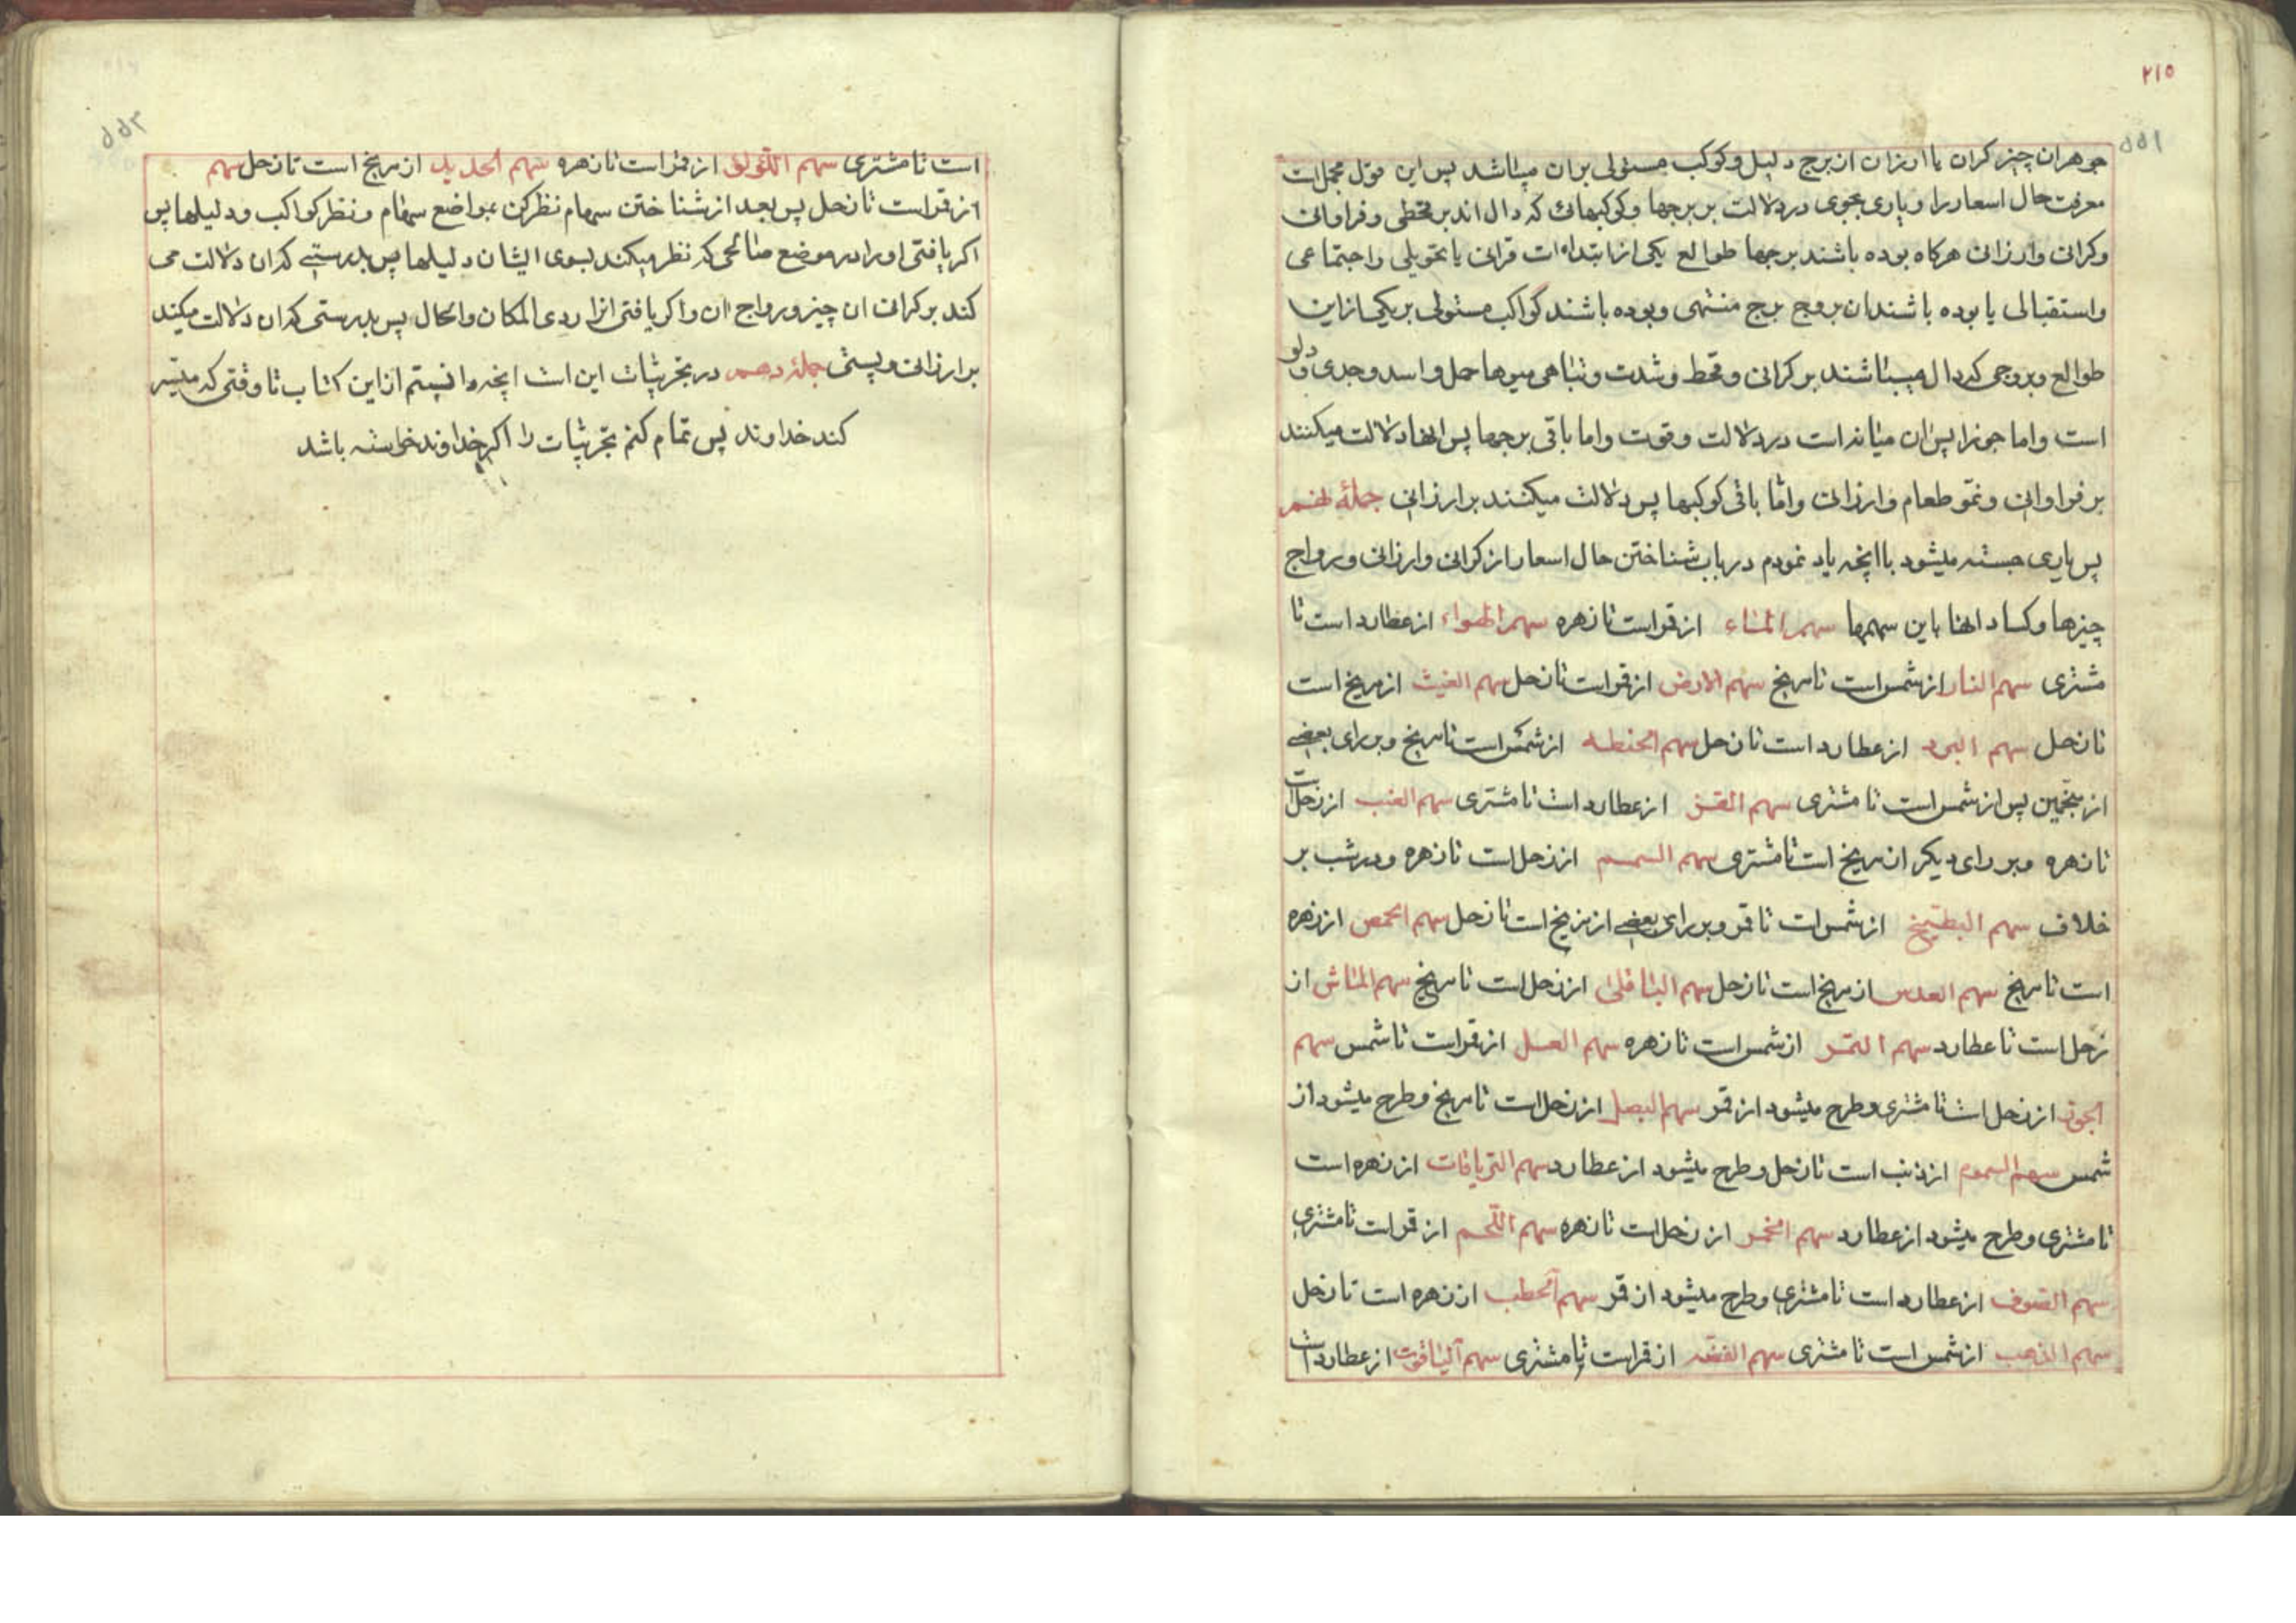 ۲۱۵
جوهر ان چیز کران یا ارزان از برج دلیل و کوکب مستولی بر ان میباشد پس این قول مجمل است
معرفت حال اسعار را و یاری بجوی در دلالت بر برجها و کوکبهائی که دال اند بر قحطی و فراوانی
و کرانی و ارزانی هرکاه بوده باشند برجها طوالع یکی از ابتداءات قرانی یا تحویلی و اجتماعی
و استقبالی یا بوده باشند ان بروج برج منتهی و بوده باشند کواکب مستولی بر یکی از این
طوالع و بروجی که دال میباشند بر کرانی و قحط و شدت و تباهی میوها حمل و اسد و جدی و دلو
است و اما جوزا پس ان میانه است در دلالت و قوت و اما باقی برجها پس انها دلالت میکنند
بر فراوانی و نمو طعام و ارزانی و اما باقی کوکبها پس دلالت میکنند بر ارزانی جملهٔ نهم
پس یاری جسته میشود با انچه یاد نمودم در باب شناختن حال اسعار از کرانی و ارزانی و رواج
چیزها و کساد انها باین سهمها سهم الماء از قمر است تا زهره سهم الهواء از عطارد است تا
مشتری سهم النار از شمس است تا مریخ سهم الارض از قمر است تا زحل سهم الغیث از مریخ است
تا زحل سهم البرد از عطارد است تا زحل سهم الحنطه از شمس است تا مریخ و بر رای بعضی
از منجمین پس از شمس است تا مشتری سهم القز از عطارد است تا مشتری سهم العنب از زحل است
تا زهره و بر رای دیکر از مریخ است تا مشتری سهم السمسم از زحل است تا زهره و در شب بر
خلاف سهم البطیخ از شمس است تا قمر و بر رای بعضی از مریخ است تا زحل سهم الحمص از زهره
است تا مریخ سهم العدس از مریخ است تا زحل سهم الباقلی از زحل است تا مریخ سهم الماش از
زحل است تا عطارد سهم التمر از شمس است تا زهره سهم العسل از قمر است تا شمس سهم
الجوز از زحل است تا مشتری و طرح میشود از قمر سهم البصل از زحل است تا مریخ و طرح میشود از
شمس سهم السموم از ذنب است تا زحل و طرح میشود از عطارد سهم التریاقات از زهره است
تا مشتری و طرح میشود از عطارد سهم الخمر از زحل است تا زهره سهم اللحم از قمر است تا مشتری
سهم الصوف از عطارد است تا مشتری و طرح میشود از قمر سهم الحطب از زهره است تا زحل
سهم الذهب از شمس است تا مشتری سهم الفضه از قمر است تا مشتری سهم الیاقوت از عطارد است
است تا مشتری سهم اللؤلؤ از قمر است تا زهره سهم الحدید از مریخ است تا زحل سهم
از قمر است تا زحل پس بعد از شناختن سهام نظر کن بمواضع سهام و نظر کواکب و دلیلها پس
اکر یافتی او را در موضع صالحی که نظر میکند بسوی ایشان دلیلها پس بدرستی که ان دلالت می
کند بر کرانی ان چیز و رواج ان و اکر یافتی انرا ردی المکان و الحال پس بدرستی که ان دلالت میکند
بر ارزانی و پستی جملهٔ دهم در تجربیات این است انچه دانستم از این کتاب تا وقتی که میسر
کند خداوند پس تمام کنم تجربیات را اکر خداوند خواسته باشد